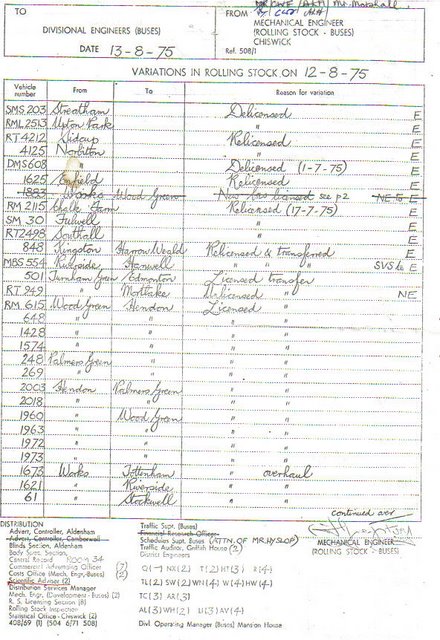 TO
DIVISIONAL ENGINEERS (BUSES)
DATE 13-8-75
FROM Mr. Marshall
MECHANICAL ENGINEER
(ROLLING STOCK - BUSES)
CHISWICK
Ref. 508/1
VARIATIONS IN ROLLING STOCK ON 12-8-75
Vehicle number From To Reason for variation
SMS 203 Streatham Delicensed E
RML 2513 Upton Park " E
RT 4212 Sidcup Relicensed E
4125 Norbiton " E
DMS 608 " Delicensed (1-7-75) E
1625 Enfield Relicensed E
1883 Works Wood Green New bus licensed see p2 NE 15 E
RM 2115 Chalk Farm Relicensed (17-7-75) E
SM 30 Fulwell " E
RT 2498 Southall " E
848 Kingston Harrow Weald Relicensed & transferred E
MBS 554 Riverside Hanwell " " " SVS te E
501 Turnham Green Edmonton Licensed transfer
RT 949 " Mortlake Delicensed " NE
RM 615 Wood Green Hendon Licensed "
648 " " " "
1428 " " " "
1574 " " " "
248 Palmers Green " " "
269 " " " "
2003 Hendon Palmers Green " "
2018 " " " "
1960 " Wood Green " "
1963 " " " "
1972 " " " "
1973 " " " "
1673 Works Tottenham " overhaul
1621 " Riverside " "
61 " Stockwell " "
continued over
DISTRIBUTION
Advert. Controller, Aldenham
Advert. Controller, Camberwell
Blinds Section, Aldenham
Body Supt. Section,
Central Record Room 34
Commercial Advertising Officer (7)
Costs Office (Mech. Engr-Buses) (2)
Scientific Adviser (2)
Distribution Services Manager
Mech. Engr. (Development - Buses) (2)
R. S. Licensing Section (8)
Rolling Stock Inspection
Statistical Office - Chiswick (2)
408/69 (1) (504 6/71 508)
Traffic Supt. (Buses)
Financial Research Officer
Schedules Supt. Buses (ATTN. OF MR. HYSLOP)
Traffic Auditor, Griffith House (2)
District Engineers
Q(-) NX(2) T(2) H(3) R(4)
TL(2) SW(2) WN(4) W(4) HW(4)
TC(3) AR(3)
AL(3) WH(2) U(3) AV(4)
Divl. Operating Manager (Buses) Mansion House
MECHANICAL ENGINEER
(ROLLING STOCK - BUSES)